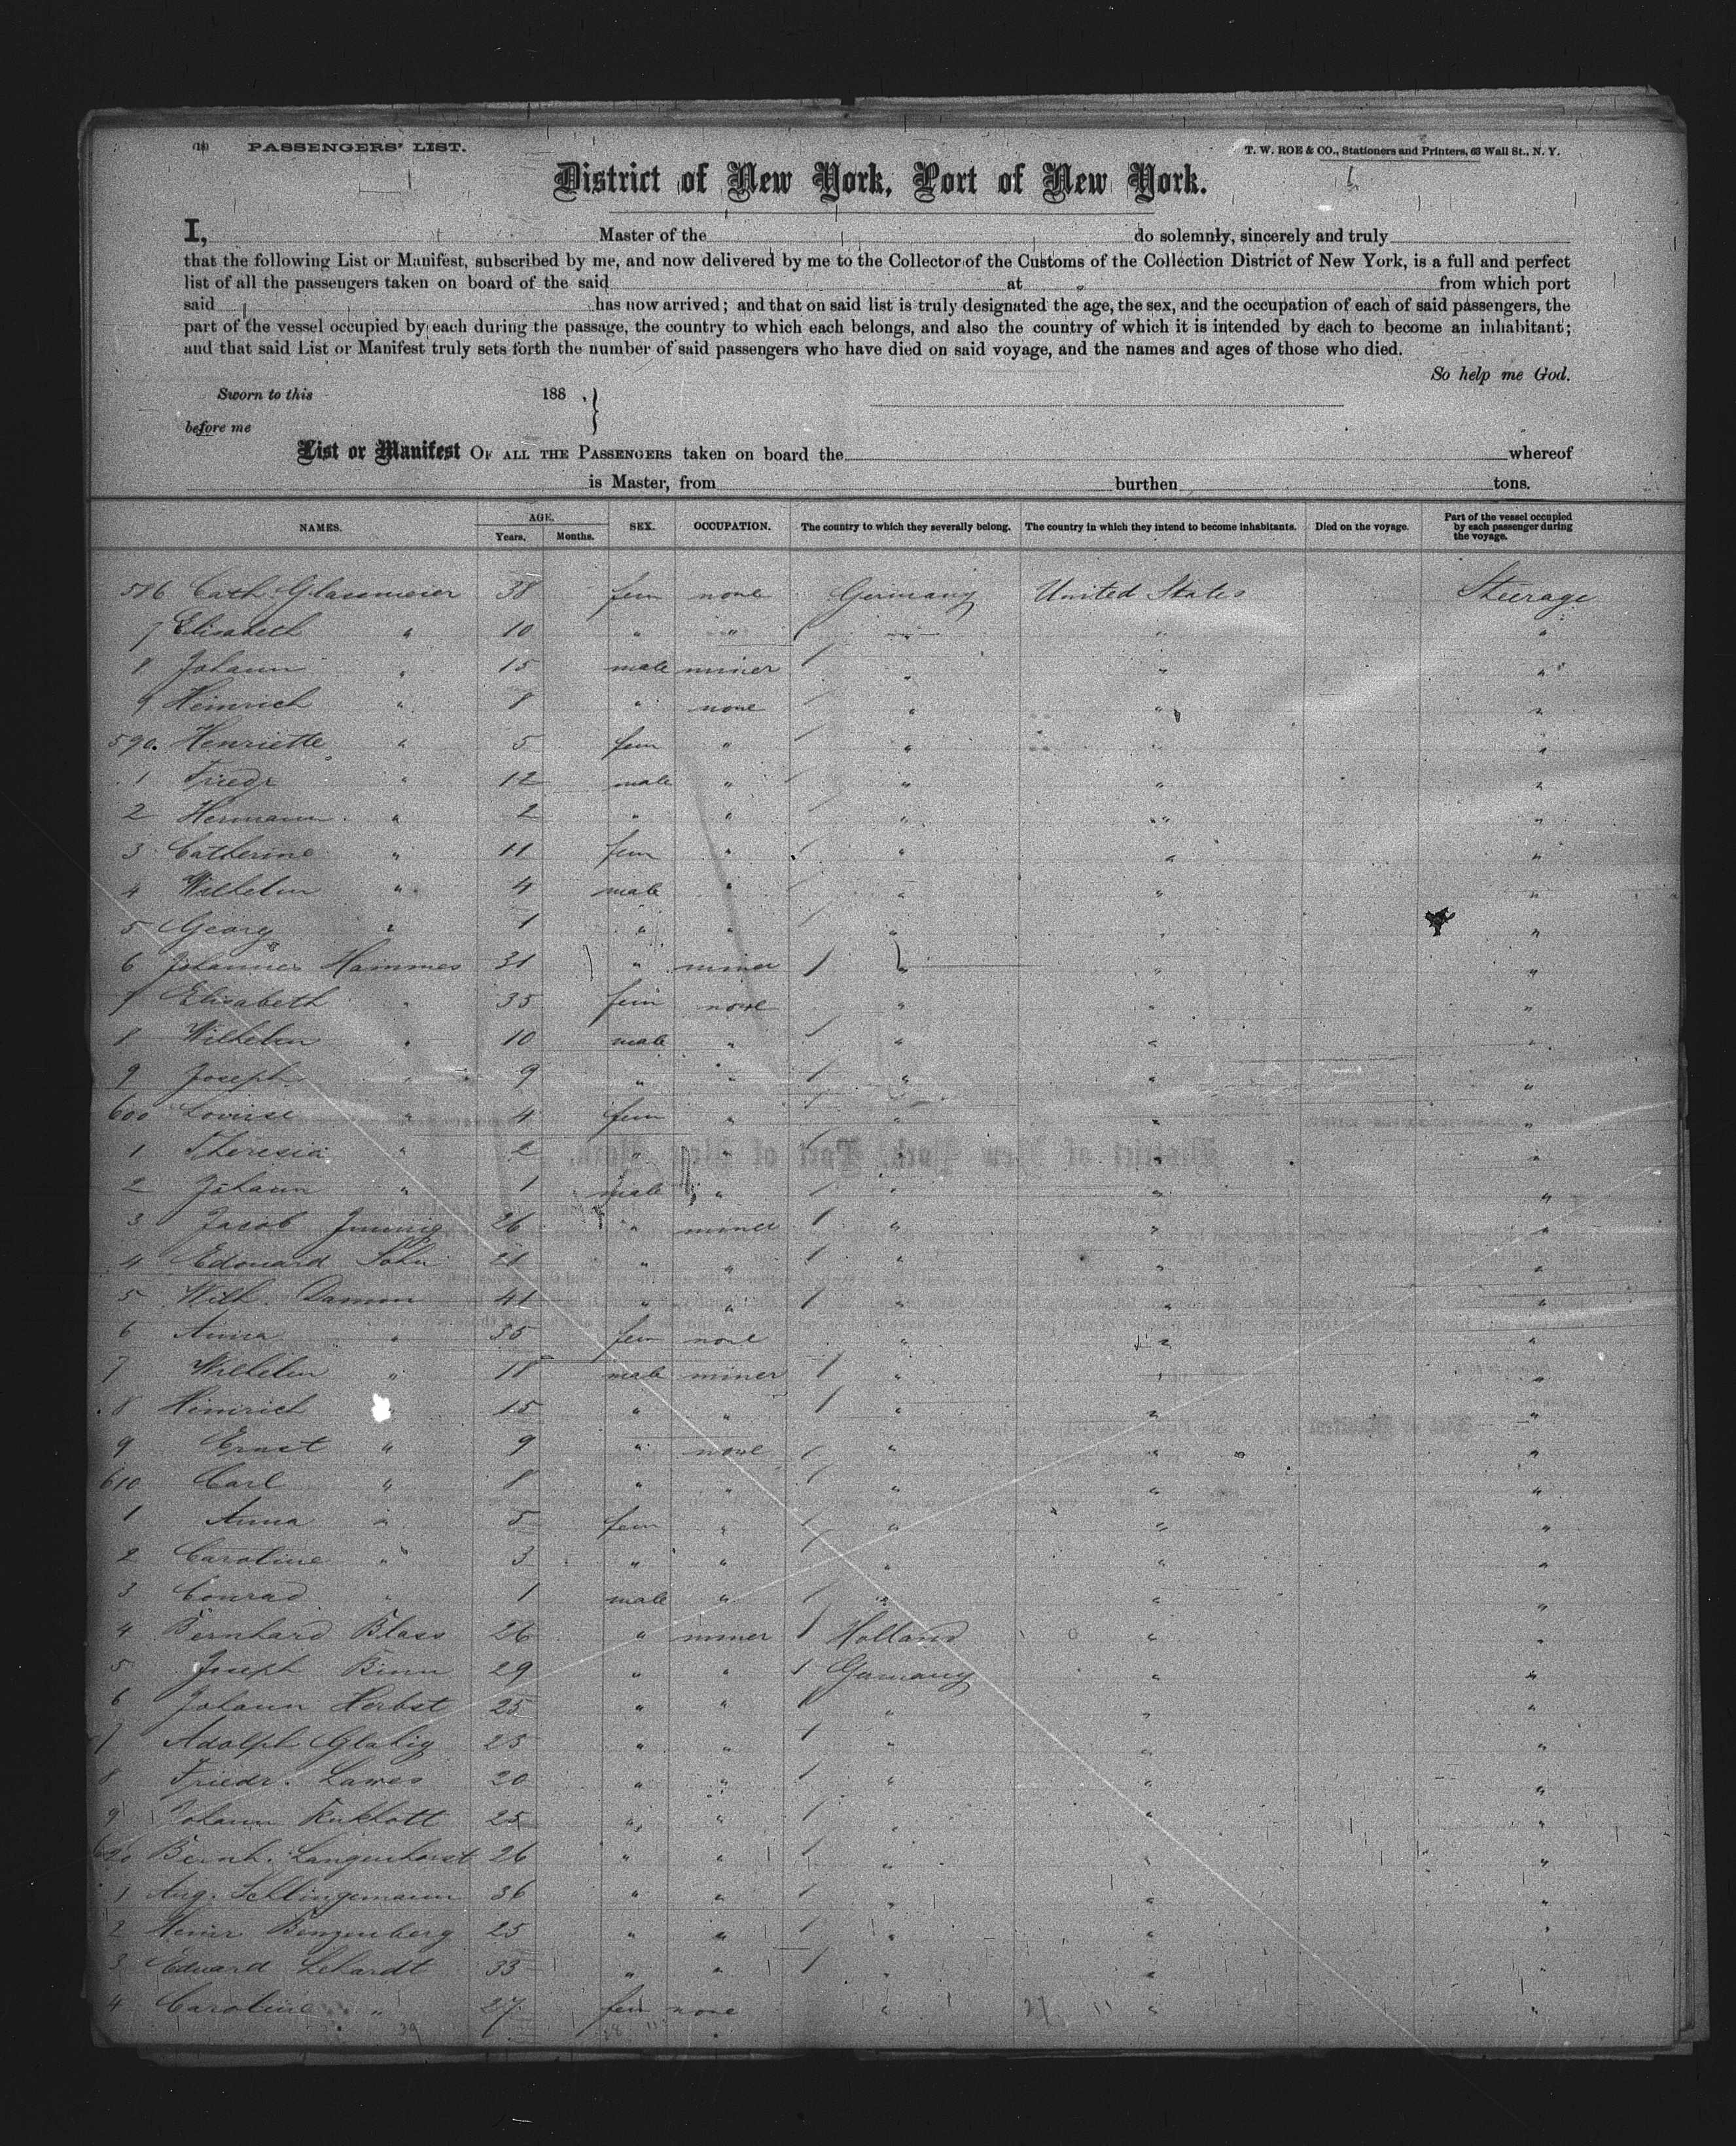 (18) PASSENGERS' LIST. T. W. ROE & CO., Stationers and Printers, 63 Wall St., N. Y.
District of New York, Port of New York.
I, Master of the do solemnly, sincerely and truly
that the following List or Manifest, subscribed by me, and now delivered by me to the Collector of the Customs of the Collection District of New York, is a full and perfect
list of all the passengers taken on board of the said at from which port
said has now arrived; and that on said list is truly designated the age, the sex, and the occupation of each of said passengers, the
part of the vessel occupied by each during the passage, the country to which each belongs, and also the country of which it is intended by each to become an inhabitant;
and that said List or Manifest truly sets forth the number of said passengers who have died on said voyage, and the names and ages of those who died.
So help me God.
Sworn to this 188 , }
before me
List or Manifest OF ALL THE PASSENGERS taken on board the whereof
is Master, from burthen tons.
NAMES. AGE. Years. Months. SEX. OCCUPATION. The country to which they severally belong. The country in which they intend to become inhabitants. Died on the voyage. Part of the vessel occupied by each passenger during the voyage.
586 Cath. Glasmeier 38 fem none Germany United States Steerage
7 Elisabeth " 10 " " 1 " " "
8 Johann " 15 male miner 1 " " "
9 Heinrich " 8 " none 1 " " "
590. Henriette " 5 fem " 1 " " "
1 Friedr " 12 male " 1 " " "
2 Hermann " 2 " " 1 " " "
3 Catherine " 11 fem " 1 " " "
4 Wilhelm " 4 male " 1 " " "
5 Georg " 1 " " 1 " " "
6 Johannes Hammes 31 " miner 1 " " "
7 Elisabeth " 35 fem none " " "
8 Wilhelm " 10 male " 1 " " "
9 Joseph " 9 " " 1 " " "
600 Lovise " 4 fem " 1 " " "
1 Theresia " 2 " " 1 " " "
2 Johann " 1 male " 1 " " "
3 Jacob 26 " miner 1 " " "
4 Edouard 21 " " 1 " " "
5 Wilh. Damm 41 " " 1 " " "
6 Anna " 35 fem none " " "
7 Wilhelm " 18 male miner 1 " " "
8 Heinrich " 15 " " 1 " " "
9 Ernst " 9 " none 1 " " "
610 Carl " 8 " " 1 " " "
1 Anna " 5 fem " 1 " " "
2 Caroline " 3 " " 1 " " "
3 Conrad " 1 male " 1 " " "
4 Bernhard Blass 26 " miner 1 Holland " "
5 Joseph Binn 29 " " 1 Germany " "
6 Johann Herbst 25 " " 1 " " "
7 Adolph 25 " " 1 " " "
8 Friedr. Lawes 20 " " 1 " " "
9 Johann 25 " " 1 " " "
620 Bernh. Langenhorst 26 " " 1 " " "
1 Aug. Schlingemann 36 " " 1 " " "
2 Heinr Benzenberg 25 " " 1 " " "
3 Eduard Lehardt 33 " " 1 " " "
4 Caroline " 27 fem none " " "
39